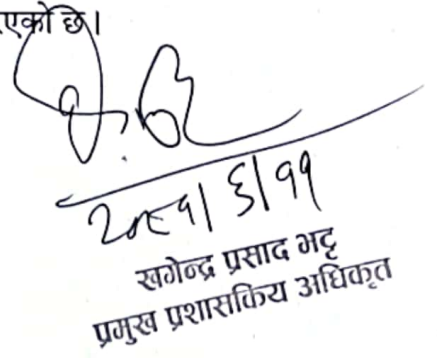 एको छ।
२०८१।६।११
खगेन्द्र प्रसाद भट्ट
प्रमुख प्रशासकिय अधिकृत